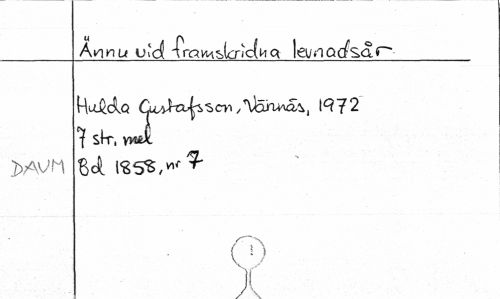 Ännu vid framskridna levnadsår
Hulda Gustafsson, Vännäs, 1972
7 str. mel
DAUM Bd 1858, nr 7